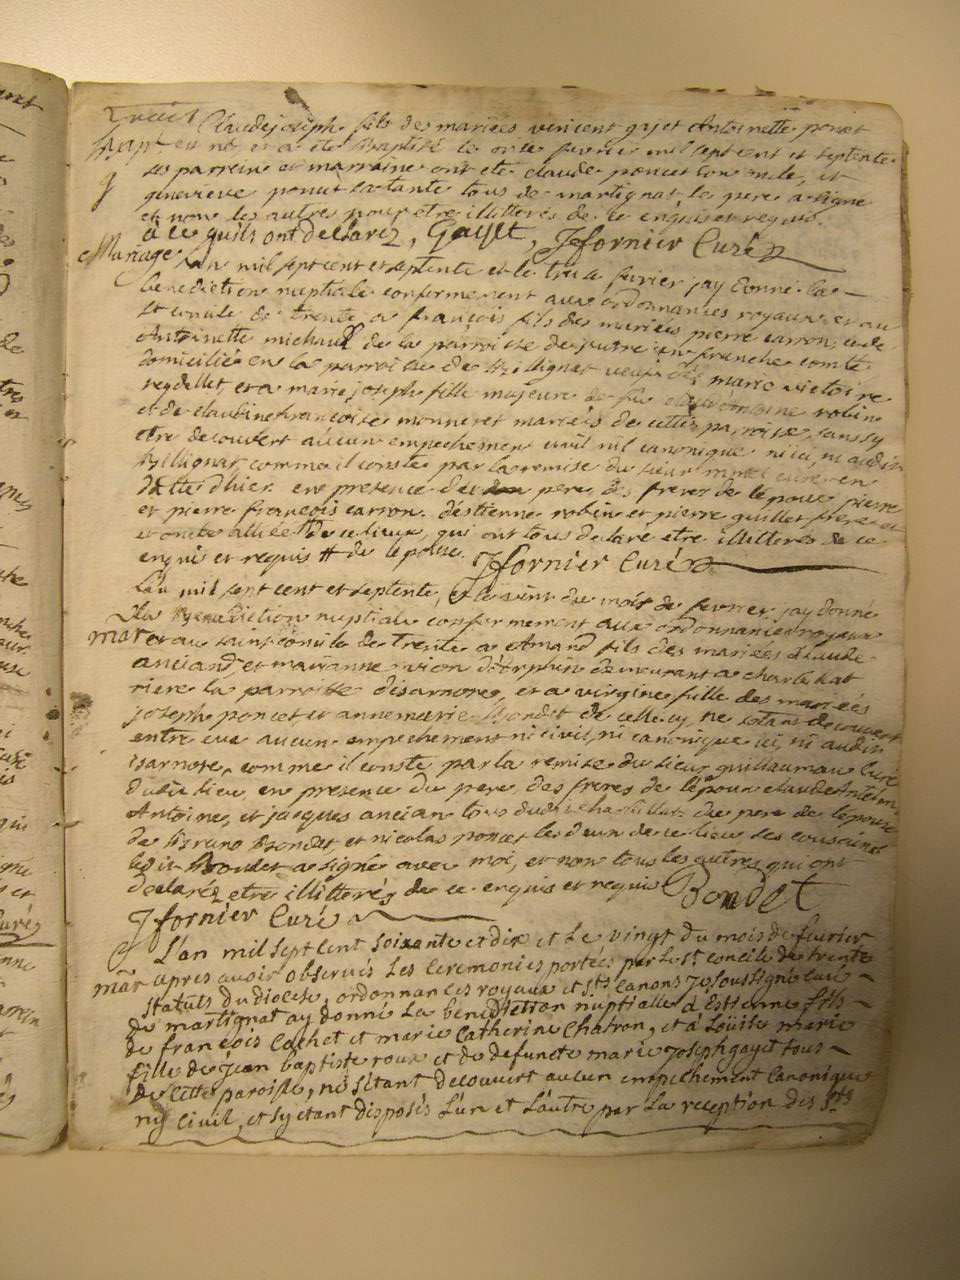 Claudejoseph fils des mariées vincent gayet Antoinette poncet
bapt est né et a été baptisé le onze fevrier mil sept cent et septente
ses parrein et marraine ont été claude poncet son oncle, et
genevieve poncet sa tante tous de martignat, le pere a signé
et non les autres pour etre illitteres de ce enquis et requis
a ce quils ont declarez, Gayet, Jfornier Curé
Mariage L'an mil sept cent et septente et le treise fevrier jay donné la
benediction nuptiale conformement aux ordonnances royaux et au
st concile de trente a françois fils des mariées pierre carron, et de
Antoinette michaud de la parroisse de en franche comté
domicilié en la parroisse de Billignat veuf de marie victoire
et a marie joseph fille majeure de feu antoine robin
et de claudinefrançoise monneret mariés de cette parroisse, sans sy
etre decouvert aucun empechement civil nil canonique ni ici, ni audit
Billignat, comme il conste par la remise du sieur curé en
datte d'hier en presence de pere des freres de lepoux pierre
et pierre françois carron. destienne robin et pierre guillet frere et
oncle allié de ce lieux, qui ont tous declaré etre illitteres de ce
enquis et requis # de lepouse. Jfornier Curé
L'an mil sept cent et septente, et le vint du mois de fevrier, jay donné
La Benediction nuptiale conformement aux ordonnances royaux
mar et au saint concile de trente a Amand fils des mariées claude
anciand et marianne demeurant a charbillat
riere la parroisse disarnore, et a virgine fille des mariées
joseph poncet et annemarie Bondet de celle cy, ne sotant decouvert
entre eux aucun empechement ni civil, ni canonique ici, ni audit
isarnore, comme il conste par la remise du sieur guillaumau Curé
dudit lieu en presence du pere, des freres de lepoux claude
Antoine, et jacques ancian tous dudit charbillat, du pere de lepouse
de bruno Bondet, et nicolas poncet les deux de ce lieu ses cousins
ledit Bondet a signé avec moi, et non tous les autres qui ont
declaréz etre illitterés de ce enquis et requis Bondet
Jfornier Curé
L'an mil sept cent soixante et dix et le vingt du mois de fevrier
mar apres avoir observés les Ceremonies portées par le st concile de trente
statuts du diocese, ordonnances royaux et sts Canons Je soussigné curé
de martignat ay donné la benediction nuptialle a Estienne fils
de françois Cochet et marie Catherine Chatron, et a Loüise marie
fille de jean baptiste roux et de defuncte marie Joseph gayet tous
de cette paroisse, ne s'étant decouvert aucun empechement Canonique
ny Civil, et sy etant disposés L'un et L'autre par La reception des Sts